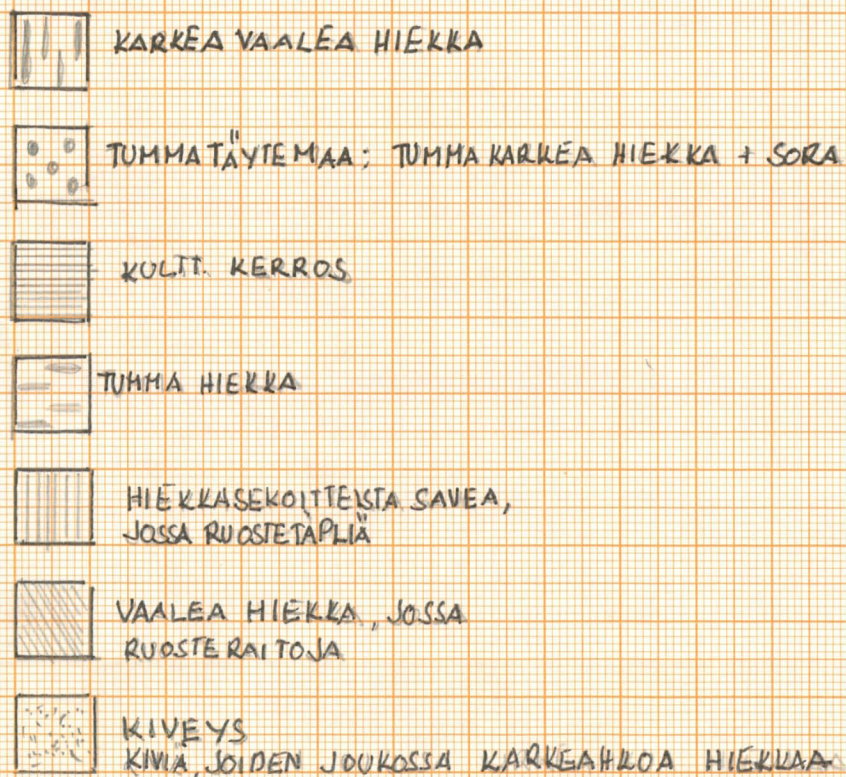 KARKEA VAALEA HIEKKA
TUMMA TÄYTEMAA: TUMMA KARKEA HIEKKA + SORA
KULTT. KERROS
TUMMA HIEKKA
HIEKKASEKOITTEISTA SAVEA,
JOSSA RUOSTETÄPLIÄ
VAALEA HIEKKA, JOSSA
RUOSTERAITOJA
KIVEYS
KIVIÄ, JOIDEN JOUKOSSA KARKEAHKOA HIEKKAA